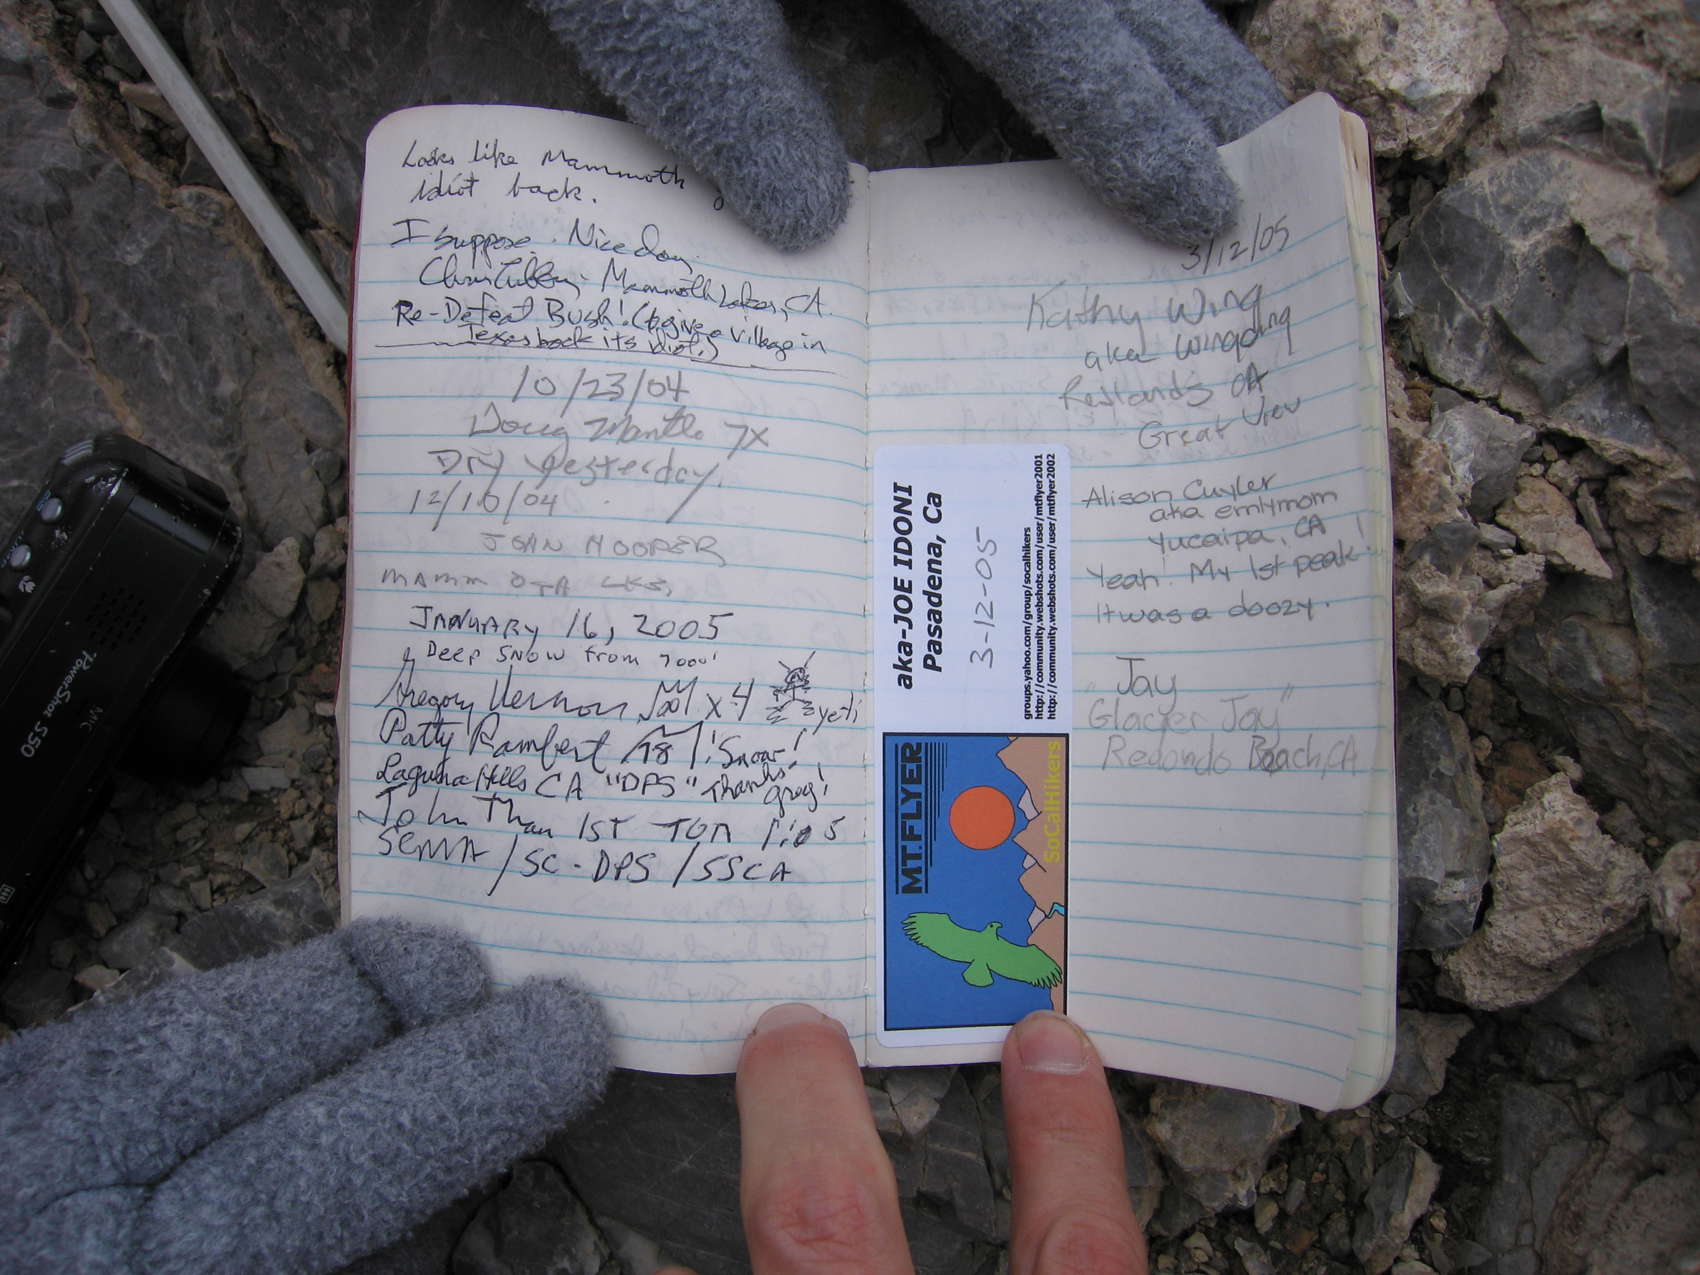 Looks like Mammoth
idiot back.
I suppose. Nice day.
Mammoth Lakes, CA.
Re-Defeat Bush! (to give a village in
Texas back its idiot.)
10/23/04
Doug Mantle 7x
Dry yesterday.
12/10/04
JOHN HOOPER
MAMMOTH LKS,
JANUARY 16, 2005
DEEP SNOW from 7000'
Gregory Vernon x4
yeti
Patty Rambert !Snow!
Laguna Hills CA "DPS" Thanks
Greg!
John Thau 1ST
SEMMA / SC-DPS / SSCA
3/12/05
Kathy Wing
aka Wingding
Redlands CA
Great View
Alison Cuyler
aka emlymom
Yucaipa, CA
Yeah! My 1st peak!
It was a doozy.
Jay
"Glacier Jay"
Redondo Beach, CA
aka-JOE IDONI
Pasadena, Ca
3-12-05
groups.yahoo.com/group/socalhikers
http://community.webshots.com/user/mtflyer2001
http://community.webshots.com/user/mtflyer2002
MT.FLYER
SoCalHikers
PowerShot S50
MIC